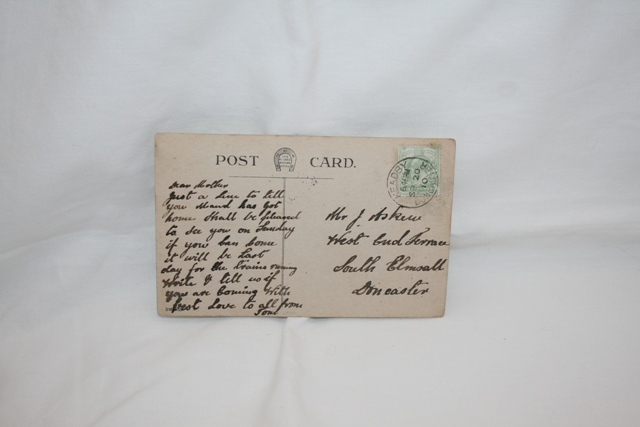 POST CARD.
Dear Mother
Just a line to tell
you Maud has got
home shall be pleased
to see you on Sunday
if you can come
it will be Last
day for the trains running
Write & tell us if
you are coming With
best Love to all from
Tom
Mr J. Askew
West End Terrace
South Elmsall
Doncaster